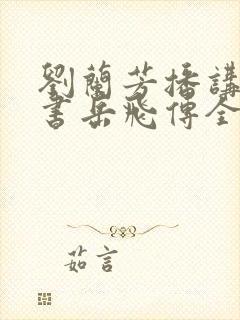 劉蘭芳播講
書岳飛傳全
茹言